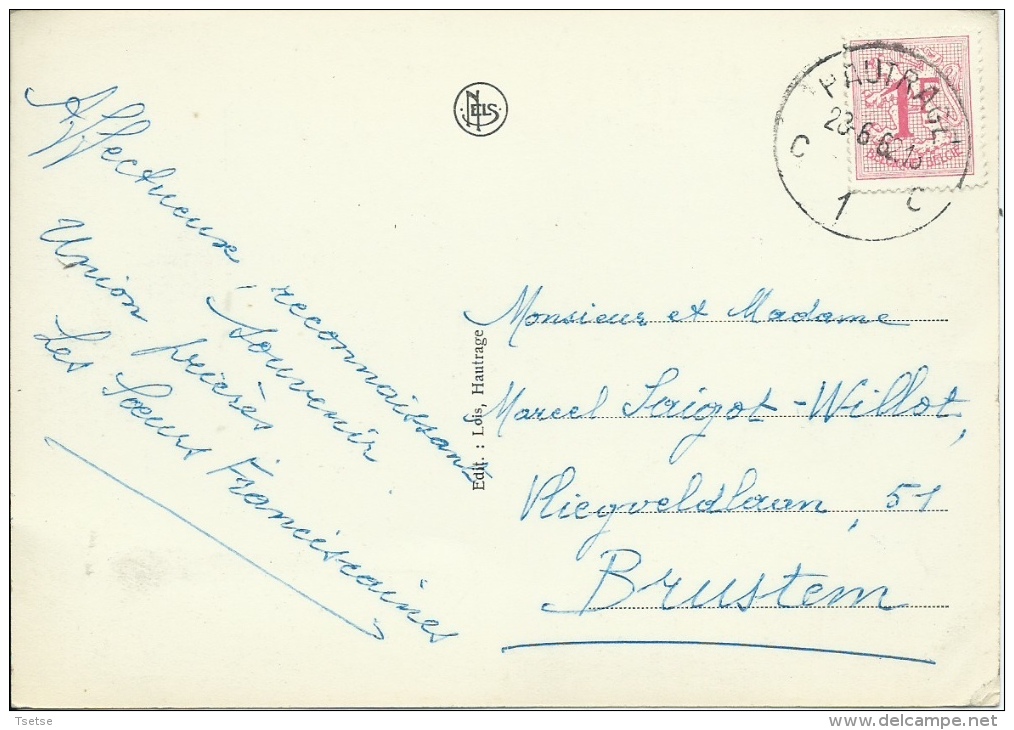 Affectueux, reconnaissant
souvenir
Union prières
Les Sœurs Franciscaines
NELS
Edit. : Loïs, Hautrage
HAUTRAGE
1F
BELGIE
C 1 C
Monsieur et Madame
Marcel Saigot-Willot,
Vliegveldlaan, 51
Brustem
Tsetse
www.delcampe.net